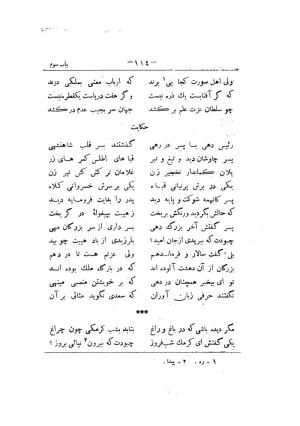 باب سوم
-١١٤-
ولی اهل صورت کجا پی برند که ارباب معنی بملکی درند
که گر آفتابست یك ذره نیست و گر هفت دریاست یکقطره نیست
چو سلطان عزت علم بر کشد جهان سر بجیب عدم در کشد
حکایت
رئیس دهی با پسر در رهی گذشتند بر قلب شاهنشهی
پسر چاوشان دید و تیغ و تبر قبا های اطلس کمر های زر
یلان کماندار نخجیر زن غلامان ترکش کش تیر زن
یکی در برش پرنیانی قباء یکی بر سرش خسروانی کلاه
پسر کانهمه شوکت و پایه دید پدر را بغایت فرومایه دید
که حالش بگردید ورنگش بریخت ز هیبت بپیغولۀ در گریخت
پسر گفتش آخر بزرگ دهی بسر داری از سر بزرگان مهی
چبودت که ببریدی ازجان امید؟ بلرزیدی از باد هیبت چو بید
بلی گفت سالار و فرماندهم ولی عزتم هست تا در دهم
بزرگان از آن دهشت آلوده اند که در بارگاه ملك بوده اند
تو ای بیخبر همچنان در دهی که بر خویشتن منصبی مینهی
نگفتند حرفی زبان آوران که سعدی نگوید مثالی بر آن
***
مگر دیده باشی که در باغ و راغ بتابد بشب کرمکی چون چراغ
یکی گفتش ای کرمك شب‌فروز چبودت که بیرون۲ نیائی بروز؟
١ - ره . ٢ - پیدا .